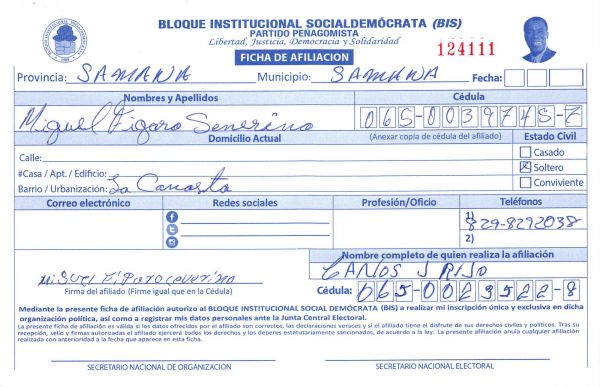 BLOQUE INSTITUCIONAL SOCIALDEMÓCRATA (BIS)
PARTIDO PEÑAGOMISTA
Libertad, Justicia, Democracia y Solidaridad
FICHA DE AFILIACION
124111
Provincia: SAMANA Municipio: SAMANA Fecha:
Nombres y Apellidos Cédula
Miguel Figaro Severino 065-0039745-7
Domicilio Actual (Anexar copia de cédula del afiliado) Estado Civil
Calle: Casado
#Casa / Apt. / Edificio: Soltero
Barrio / Urbanización: La Canasta Conviviente
Correo electrónico Redes sociales Profesión/Oficio Teléfonos
1) 829-8292038
2)
Nombre completo de quien realiza la afiliación
Miguel Figaro Severino CARLOS J RIJO
Firma del afiliado (Firme igual que en la Cédula) Cédula: 065-0023522-8
Mediante la presente ficha de afiliación autorizo al BLOQUE INSTITUCIONAL SOCIAL DEMÓCRATA (BIS) a realizar mi inscripción única y exclusiva en dicha
organización política, así como a registrar mis datos personales ante la Junta Central Electoral.
La presente ficha de afiliación es válida si los datos ofrecidos por el afiliado son correctos, las declaraciones veraces y si el afiliado tiene el disfrute de sus derechos civiles y políticos. Tras su
recepción, sello y firmas autorizadas el afiliado ejercerá todos los derechos y los deberes estatutariamente sancionados, de acuerdo a la ley. La presente afiliación anula cualquier afiliación
realizada con anterioridad a la fecha que aparece en esta ficha.
SECRETARIO NACIONAL DE ORGANIZACIÓN SECRETARIO NACIONAL ELECTORAL